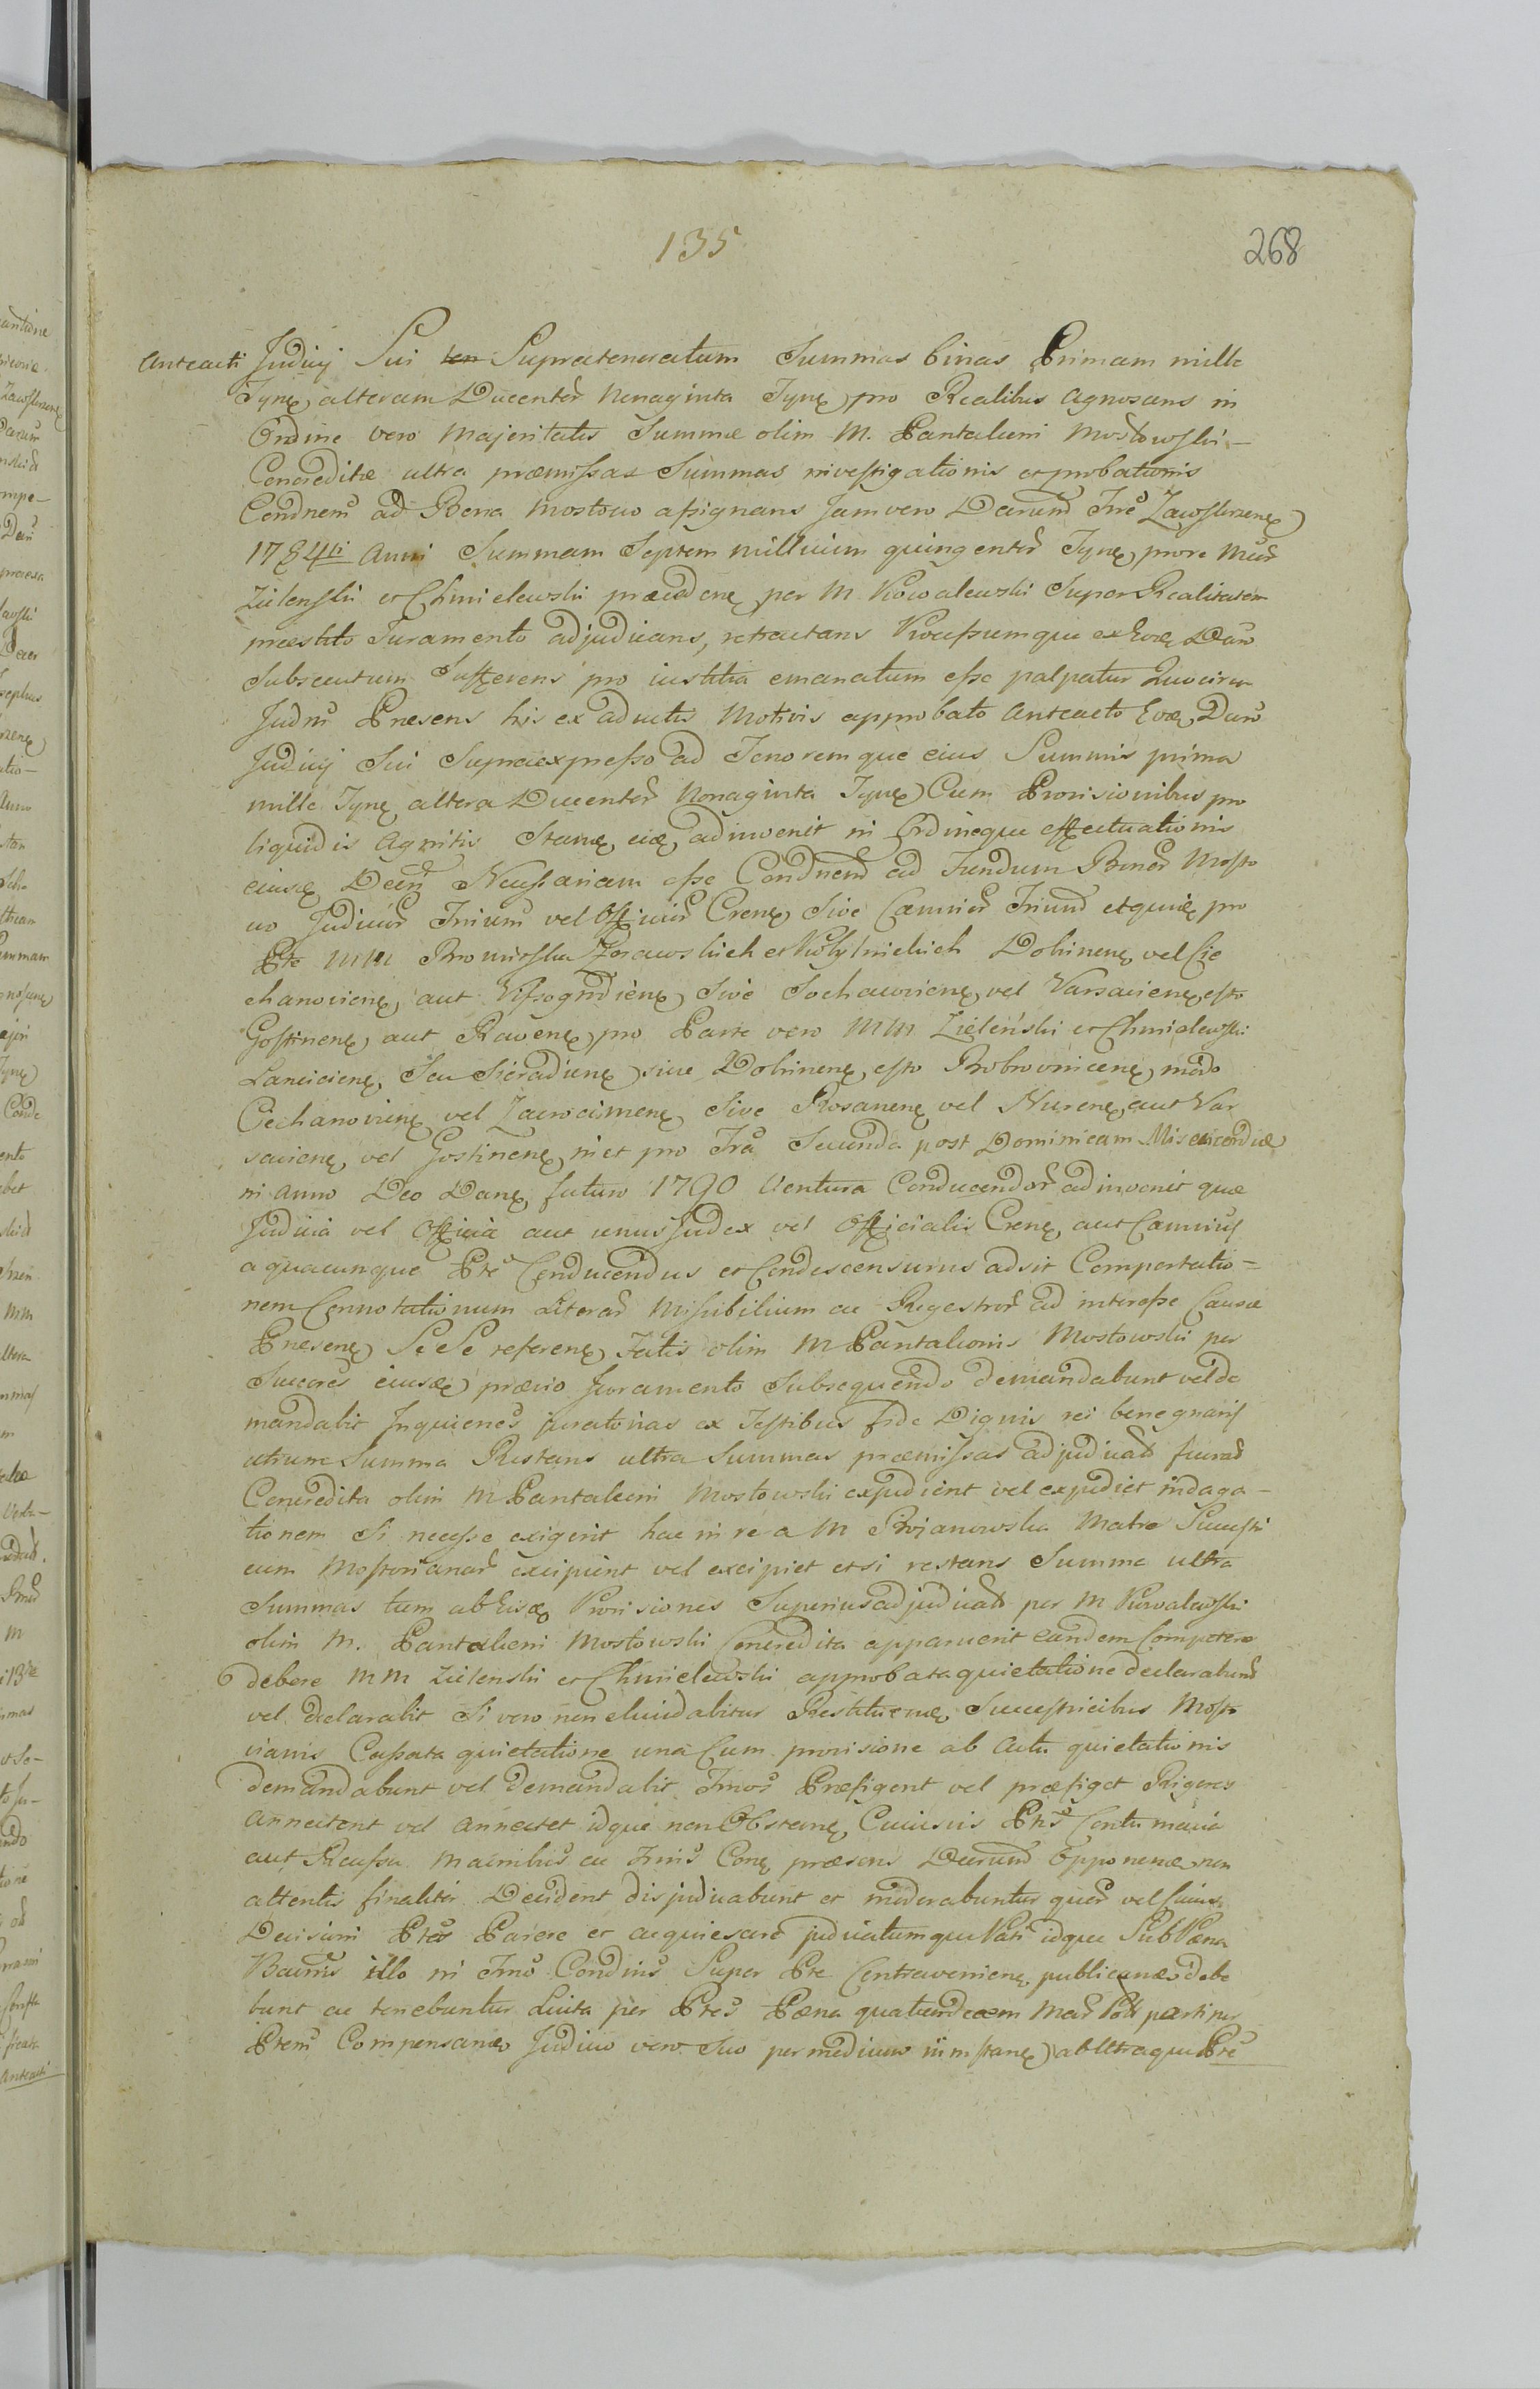 135
268
Anteacti Judicij Sui ten Supratenoratum Summas binas Primam mille
Tynę alteram Ducentor Nonaginta Tynę pro Realibus agnoscens in
Ordine vero Majoritatis Summæ olim M. Pantaleoni Mostowski –
Concreditæ ultra præmissas Summas investigationis et probationis
Condnem ad Bona Mostowo assignans Jam vero Darum Fre Zawskrzenę
1784ti Anni Summam Septem millium quingentor Tynę prore
Zielenski et Chmielewski præcedenę per M Kowalewski Super Realitatem
præstito Juramento adjudicans, retractans Processumque ex Evæ Daw
Subsecutum Sufferens pro iustitia emanatum esse palpatur Quocirca
Judm Præsens his ex aductis Motivis approbato Anteacto Evæ Daw
Judicij Sui Supraexpresso ad Tenoremque eius Summis prima
mille Tynę altera Ducentor Nonaginta Tynę Cum Provisionibus pro
liquidis Agnitis Stanę, eiæ, adinvenit in Ordineque effectuationis
eiusæ Necessariam esse Condnem ad Fundum Bonor Mosto
wo Judicior Trium vel Officior Crenę Sive Camrior etquię pro
Pte MM Bromirska Zorawskich et Dobrinenę vel Cie
chanovienę, aut Vissogrdienę Sive Sochacvienę, vel Varsavienę, esto
Gostinenę aut Ravenę pro Parte vero MM Zieleński et Chmielewski
Lancicienę, Seu Sieradienę sive Dobrinenę, esto Bobrovnicenę modo
Ciechanovienę vel Zacrocimenę Sive Rosanenę vel Nurenę, aut Var
savienę vel Gostinenę, in et pro Fra Secunda post Dominicam Misericordiæ
in Anno Deo Danę futuro 1790 Ventura Conducendor adinvenit quæ
Judicia vel Officia aut unus Judex vel Officialis Crenę aut
a quacunque Pte Conducendus et Condescensurus adsit Comportatio –
nem Connotationum Literar Missibilium ac Regestror ad interesse Causæ
Præsenę SeSe referenę Fatis olim M Pantaleonis Mostowski per
Succores eiusæ prævio Juramento Subsequendo demandabunt vel de
mandabit Inquienes juratorias ex Testibus fide Dignis rei bene gnaris
utrum Summa Restans ultra Summas præmissas adjudicat fuerat
Concredita olim M Pantaleoni Mostowski expedient vel expediet indaga –
tionem Si necesse exigerit hac in re a M Trojanowska Matre
cum Mostovianar excipient vel excipiet et si restans Summa ultra
Summas tum ab Eisæ Provisiones Superius adjudicat per M Kowalewski
olim M. Pantaleoni Mostowski Concredita apparuerit eandem Competere
debere MM Zielenski et Chmielewski approbata quietatione declarabunt
vel declarabit Si vero non elucidabitur Restituenę Successricibus Mosto
vianis Cassata quietatione una Cum provisione ab Actu quietationis
demandabunt vel demandabit Præfigent vel præfiget Rigores
annectent vel annectet idque non Obstanę Cuiusvis Ptis Contumacia
aut Recessu præsens Opponenæ non
attentis finaliter Decident disjudicabunt et moderabuntur vel
Decisioni Ptes Parere et acquiescere judicatumque Pati idque Sub Pæna
Bannis illo in Condnis Super Pte Contraveniene publicanæ debe
bunt ac tenebuntur Luita per Ptes Pæna quatuordecem parti per
Ptem Compensanæ Judicio vero Suo per medium ab Utraque Pte